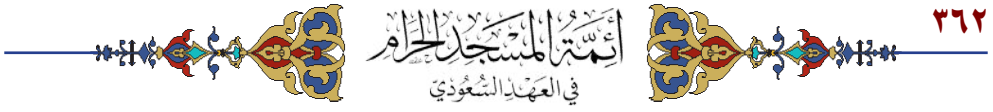 ٣٦٢
أئمة المسجد الحرام
في العهد السعودي